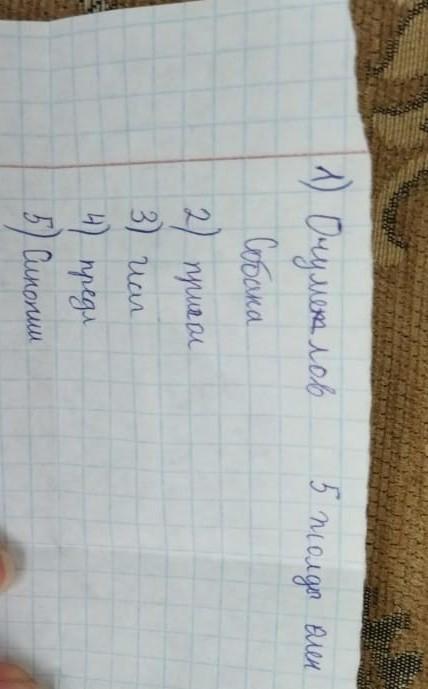 1) Очумелов 5 жолды өлең
Собака
2) прилаг
3) гл
4) предл
5) Синоним